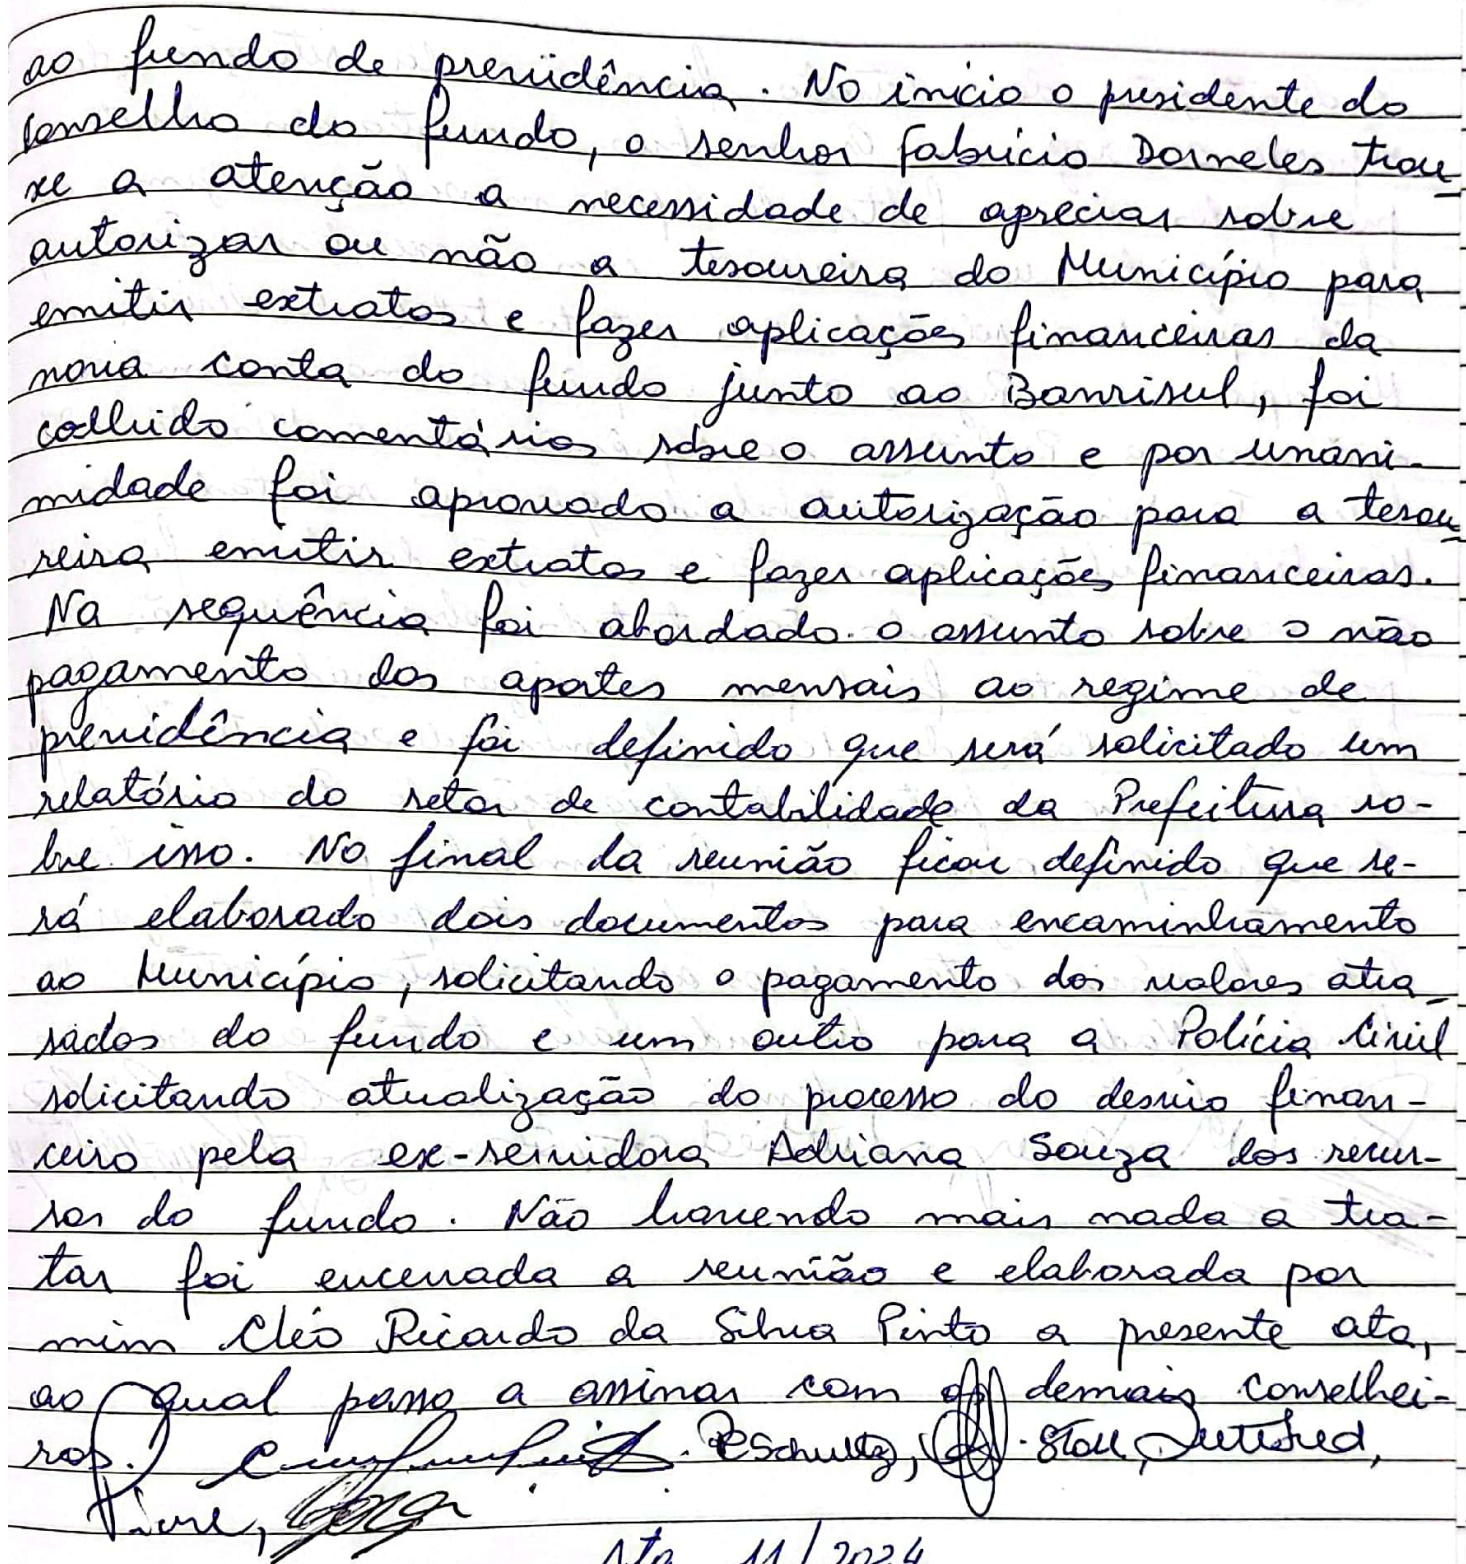 ao fundo de previdência. No início o presidente do
Conselho do fundo, o senhor Fabrício Dorneles trou-
xe a atenção a necessidade de apreciar sobre
autorizar ou não a tesoureira do Município para
emitir extratos e fazer aplicações financeiras da
nova conta do fundo junto ao Banrisul, foi
colhido comentários sobre o assunto e por unani-
midade foi aprovado a autorização para a tesou-
reira emitir extratos e fazer aplicações financeiras.
Na sequência foi abordado o assunto sobre o não
pagamento dos aportes mensais ao regime de
previdência e foi definido que será solicitado um
relatório do setor de contabilidade da Prefeitura so-
bre isso. No final da reunião ficou definido que se-
rá elaborado dois documentos para encaminhamento
ao Município, solicitando o pagamento dos valores atra-
sados do fundo e um outro para a Polícia Civil
solicitando atualização do processo do desvio finan-
ceiro pela ex-servidora Adriana Souza dos recur-
sos do fundo. Não havendo mais nada a tra-
tar foi encerrada a reunião e elaborada por
mim Cléo Ricardo da Silva Pinto a presente ata,
ao qual passo a assinar com os demais conselhei-
ros. Schultz,
Ata 11/2024